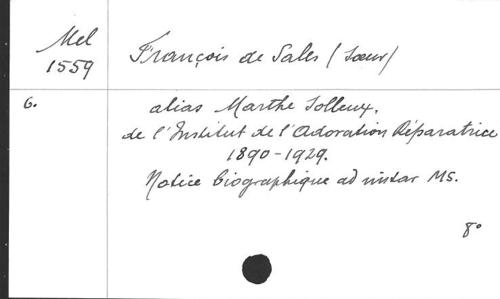 Mel
1559
François de Sales (Sœur)
6.
alias Marthe Solleux.
de l'Institut de l'Adoration Réparatrice
1890-1929.
Notice biographique ad instar MS.
8°